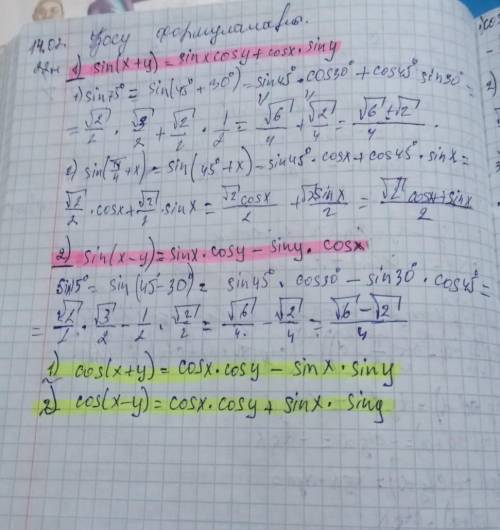 14.02. Қосу формулалары.
1) sin(x+y) = sinx cosy + cosx · siny
1) sin75° = sin(45° + 30°) = sin45° · cos30° + cos45° sin30° =
= √2/2 · √3/2 + √2/2 · 1/2 = √6/4 + √2/4 = √6+√2/4 .
2) sin(π/4 + x) = sin(45° + x) – sin45° · cosx + cos45° · sinx =
√2/2 · cosx + √2/2 · sinx = √2cosx/2 + √2sinx/2 = √2 cosx+sinx/2
2) sin(x–y) = sinx · cosy – siny · cosx
sin15° = sin(45–30°) = sin45° · cos30° – sin30° · cos45° =
= √2/2 · √3/2 – 1/2 · √2/2 = √6/4 – √2/4 = √6–√2/4
1) cos(x+y) = cosx · cosy – sinx · siny
2) cos(x–y) = cosx · cosy + sinx · sing